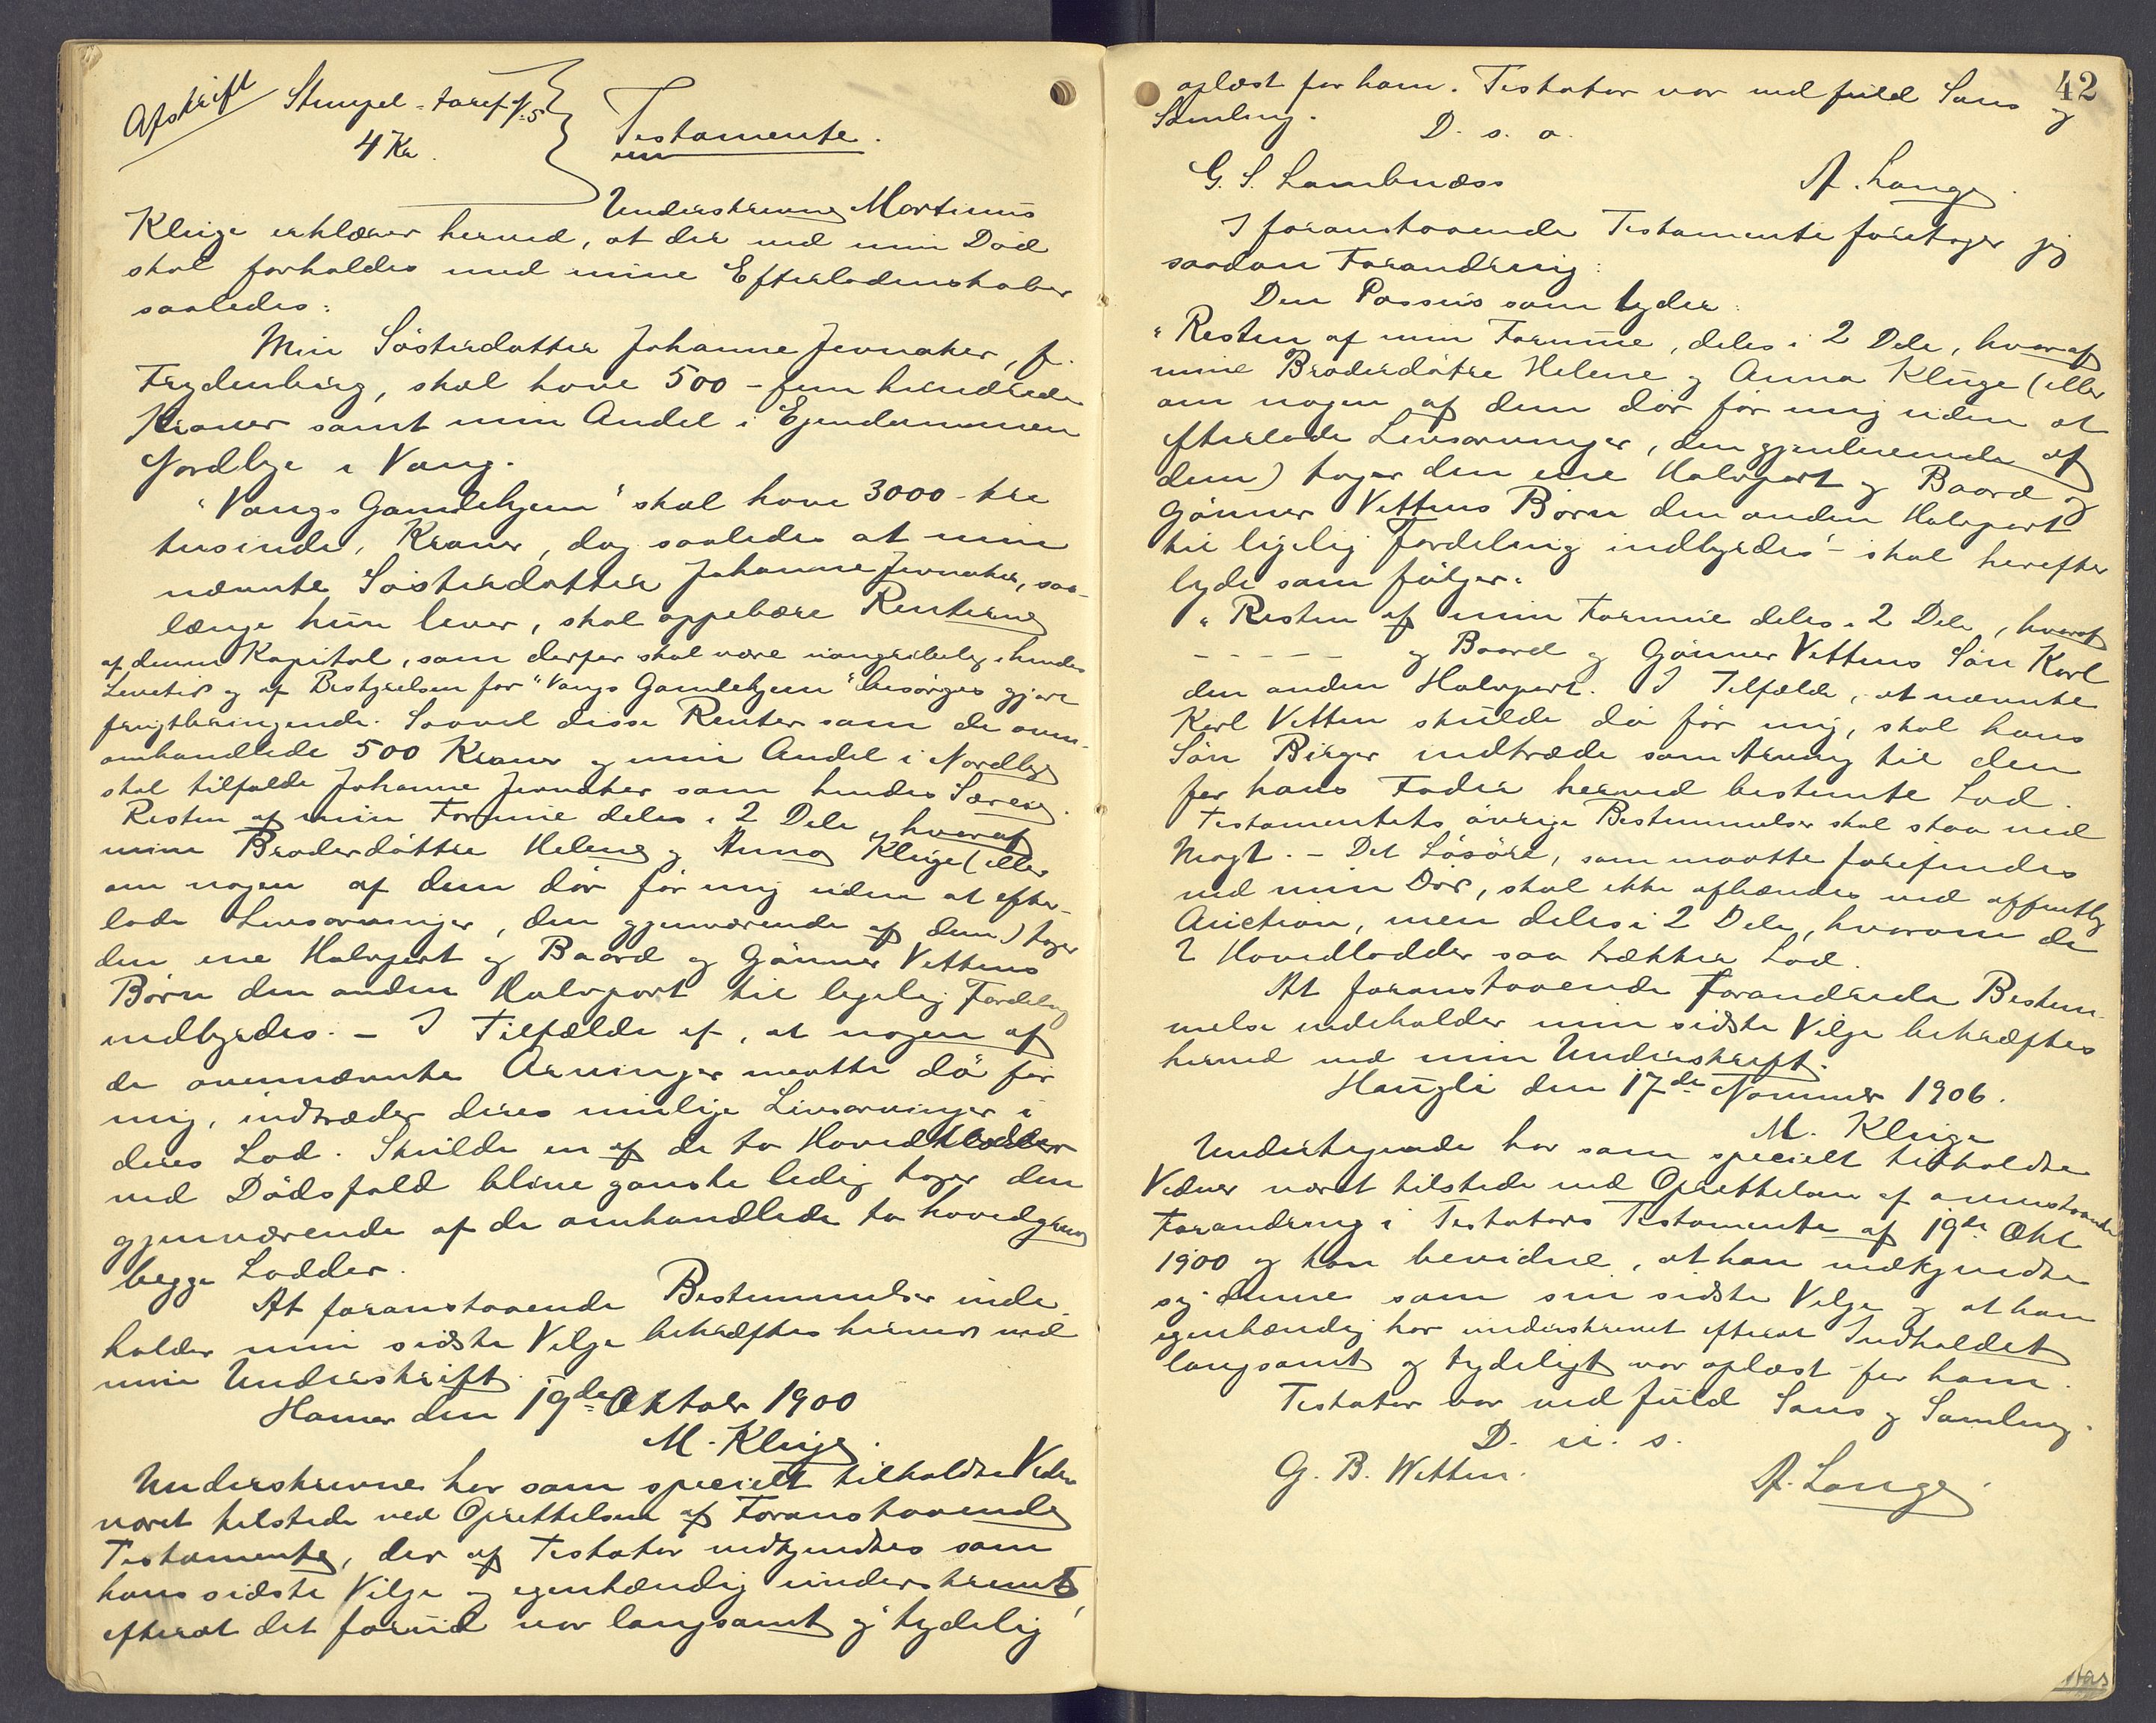 Afskrift Stempel-tarif № 5
4 Kr.
Testamente.
Underskrevne Martinus
Kluge erklærer herved, at der ved min Död
skal forholdes med mine Efterladenskaber
saaledes:
Min Södterdatter Johanne Jevnaker, f.
Frydenberg, skal have 500 - fem hundrede
Kroner samt min Andel i Ejendommen
Nordbye i Vang.
"Vangs Gamlehjem" skal have 3000 - tre
tusinde, Kroner, dog saaledes at min
nævnte Södterdatter Johanne Jevnaker, saa-
længe hun lever, skal oppebære Renterne
af denne Kapital, som derfor skal være uangribelig i hendes
Levetid og af Bestyrelsen for "Vangs Gamlehjem" besörges gjort
frugtbringende. Saavel disse Renter som de oven-
omhandlede 500 Kroner og min Andel i Nordbye
skal tilfalde Johanne Jevnaker som hendes Særeie.
Resten af min Formue deles i 2 Dele, hvoraf
mine Broderdöttre Helene og Anna Kluge (eller
om nogen af dem dör för mig uden at efter-
lade Livsarvinger, den gjenværende af dem) tager
den ene Halvpart og Baard og Gönner Vettens
Börn den anden Halvpart til ligelig Fordeling
indbyrdes. - I Tilfælde af, at nogen af
de ovennævnte Arvinger maatte dö för
mig, indtræder deres mulige Livsarvinger i
deres Lod. Skulde en af de to Hovedlodder
ved Dödsfald blive ganske ledig tager den
gjenværende af de omhandlede to hovedgrene
begge Lodder.
At foranstaaende Bestemmelser inde-
holder min sidste Vilje bekræftes herved med
min Underskrift.
Hamar den 19de Oktober 1900
M. Kluge.
Underskrevne har som specielt tilkaldte Vidner
været tilstede ved Oprettelsen af Foranstaaende
Testamente, der af Testator vedkjendtes som
hans sidste Vilje og egenhændig underskrevet,
efterat det forud var langsomt og tydelig
42
oplæst for ham. Testator var ved fuld Sans og
Samling.
D. s. a.
G. S. Lambnæss A. Lange.
I foranstaaende Testamente foretager jeg
saadan Forandring:
Den Passus som lyder:
"Resten af min Formue, deles i 2 Dele, hvoraf
mine Broderdötre Helene og Anna Kluge (eller
om nogen af dem dör för mig uden at
efterlade Livsarvinger, den gjenlevende af
dem) tager den ene Halvpart og Baard og
Gönner Vettens Börn den anden Halvpart
til ligelig Fordeling indbyrdes" - skal herefter
lyde som fölger:
"Resten af min Formue deles i 2 Dele, hvoraf
- - - - - og Baard og Gönner Vettens Sön Karl
den anden Halvpart. I Tilfælde, at nævnte
Karl Vetten skulde dö för mig, skal hans
Sön Birger indtræde som Arving til den
for hans Fader herved bestemte Lod.
Testamentets övrige Bestemmelser skal staa ved
Magt. - Det Lösöre, som maatte forefindes
ved min Död, skal ikke afhændes ved offentlig
Auction, men deles i 2 Dele, hvorom de
2 Hovedlodder saa trækker Lod.
At foranstaaende Forandrede Bestem-
melse indeholder min sidste Vilje bekræftes
herved ved min Underskrift.
Haugli den 17de November 1906.
M. Kluge
Undertegnede har som specielt tilkaldte
Vidner været tilstede ved Oprettelsen af ovenstaaende
Forandring i Testators Testamente af 19de Okt
1900 og kan bevidne, at han vedkjendte
sig denne som sin sidste Vilje og at han
egenhændig har underskrevet efterat Indholdet
langsomt og tydeligt var oplæst for ham.
Testator var ved fuld Sans og Samling.
D. u. s.
G. B. Wetten. A. Lange.